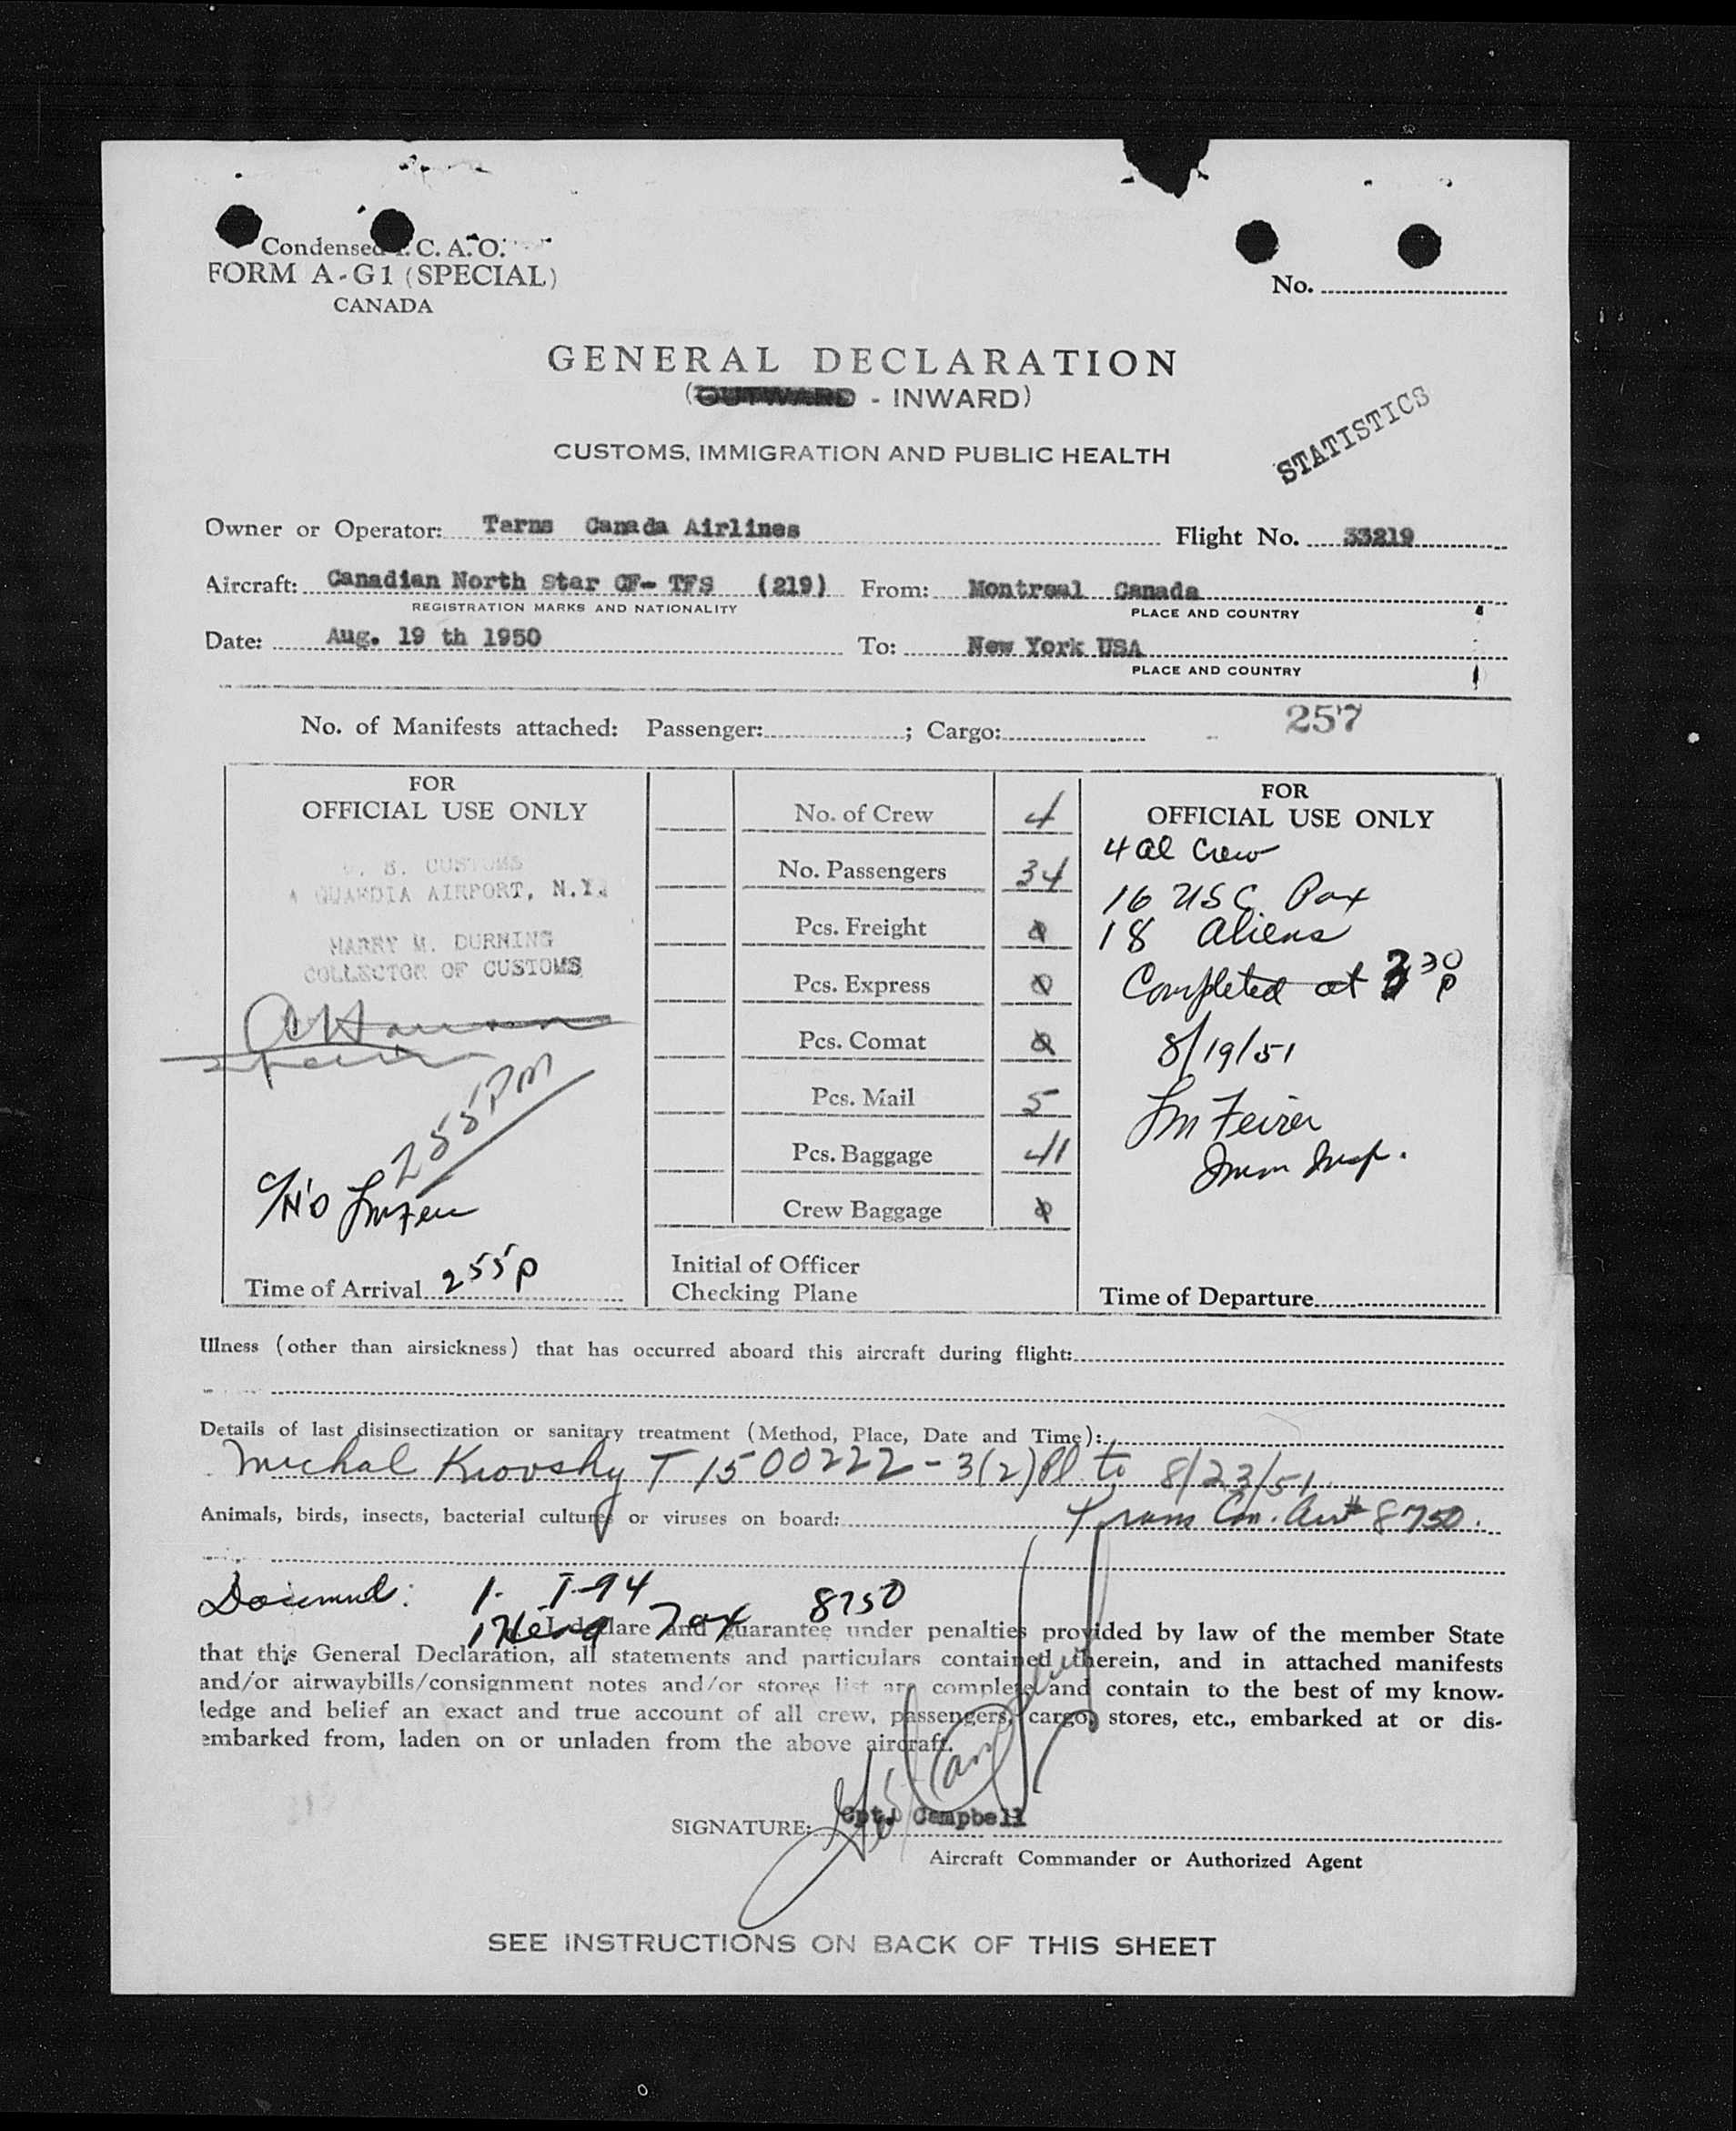 Condensed I. C. A. O.
FORM A-G1 (SPECIAL)
CANADA
No.
GENERAL DECLARATION
(OUTWARD - INWARD)
CUSTOMS, IMMIGRATION AND PUBLIC HEALTH
STATISTICS
Owner or Operator: Terns Canada Airlines Flight No. 33219
Aircraft: Canadian North Star CF- TFS (219) From: Montreal Canada
REGISTRATION MARKS AND NATIONALITY PLACE AND COUNTRY
Date: Aug. 19 th 1950 To: New York USA
PLACE AND COUNTRY
No. of Manifests attached: Passenger: ; Cargo: 257
FOR
OFFICIAL USE ONLY
U. S. CUSTOMS
QUARDIA AIRPORT, N.Y.
HARRY M. DURNING
COLLECTOR OF CUSTOMS
255PM
Time of Arrival 255p
No. of Crew 4
No. Passengers 34
Pcs. Freight 0
Pcs. Express 0
Pcs. Comat 0
Pcs. Mail 5
Pcs. Baggage 41
Crew Baggage 0
Initial of Officer
Checking Plane
FOR
OFFICIAL USE ONLY
4 al Crew
16 USC Pax
18 Aliens
Completed at 330 p
8/19/51
Imm Insp.
Time of Departure
Illness (other than airsickness) that has occurred aboard this aircraft during flight:
Details of last disinsectization or sanitary treatment (Method, Place, Date and Time):
Michal Krovsky T 1500222-3(2) Pl to 8/23/51
Animals, birds, insects, bacterial cultures or viruses on board: Trans Can. Air # 8750.
1- I-94
1 Head Tax 8750
I declare and guarantee under penalties provided by law of the member State
that this General Declaration, all statements and particulars contained therein, and in attached manifests
and/or airwaybills/consignment notes and/or stores list are complete and contain to the best of my know-
ledge and belief an exact and true account of all crew, passengers, cargo, stores, etc., embarked at or dis-
embarked from, laden on or unladen from the above aircraft.
SIGNATURE: Cpt. Campbell
Aircraft Commander or Authorized Agent
SEE INSTRUCTIONS ON BACK OF THIS SHEET